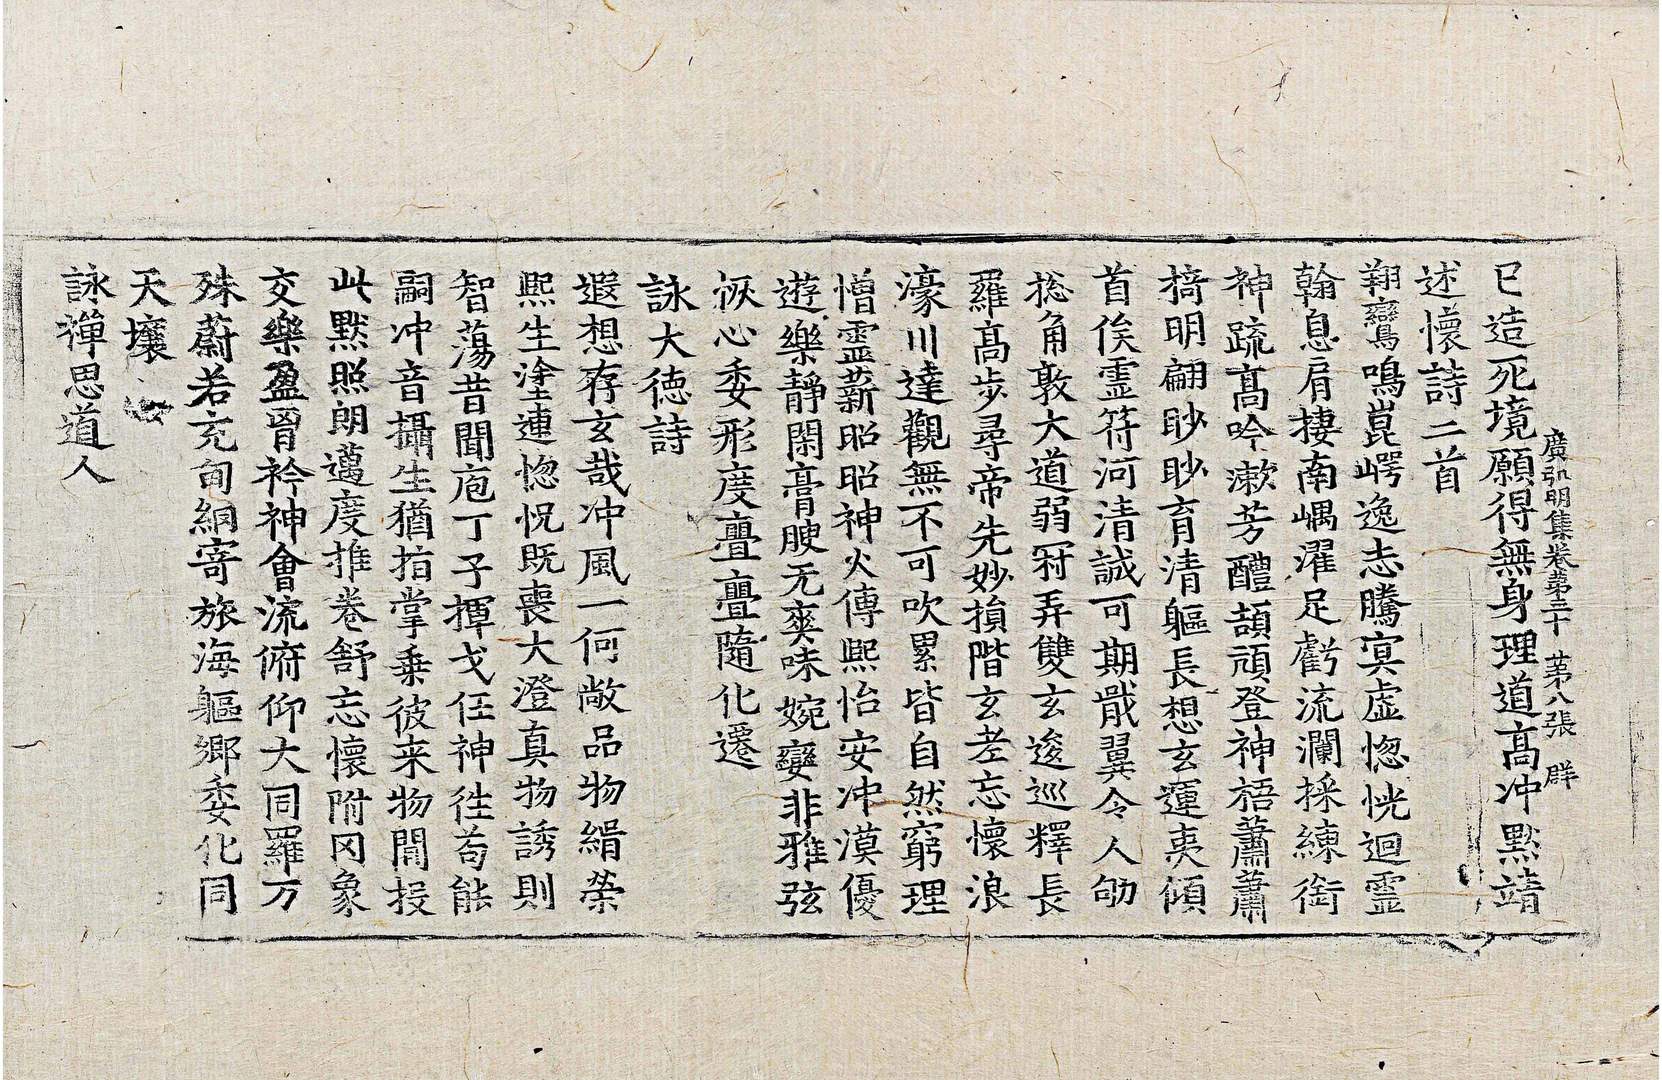 已造死境願得無身理道高冲默靖
廣弘明集卷第三十 第八張 群
述懷詩二首
翔鸞鳴崑崿逸志騰冥虛惚恍迴靈
翰息肩棲南嵎濯足戲流瀾採練銜
神蔬高吟漱芳醴頡頏登神梧蕭蕭
猗明翩眇眇育清軀長想玄運夷傾
首俟靈符河清誠可期戢翼令人劬
捴角敦大道弱冠弄雙玄逡巡釋長
羅高步尋帝先妙損階玄老忘懷浪
濠川達觀無不可吹累皆自然窮理
增靈薪昭昭神火傳熙怡安冲漠優
遊樂靜閑膏腴无爽味婉孌非雅弦
恢心委形度亹亹隨化遷
詠大德詩
遐想存玄哉冲風一何敞品物緝榮
熙生塗連惚怳既喪大澄真物誘則
智蕩昔聞庖丁子揮戈任神往苟能
嗣冲音攝生猶指掌乘彼来物閒投
此默照朗邁度推卷舒忘懷附罔象
交樂盈胷衿神會流俯仰大同羅万
殊蔚若充甸網寄旅海軀鄉委化同
天壤
詠禪思道人